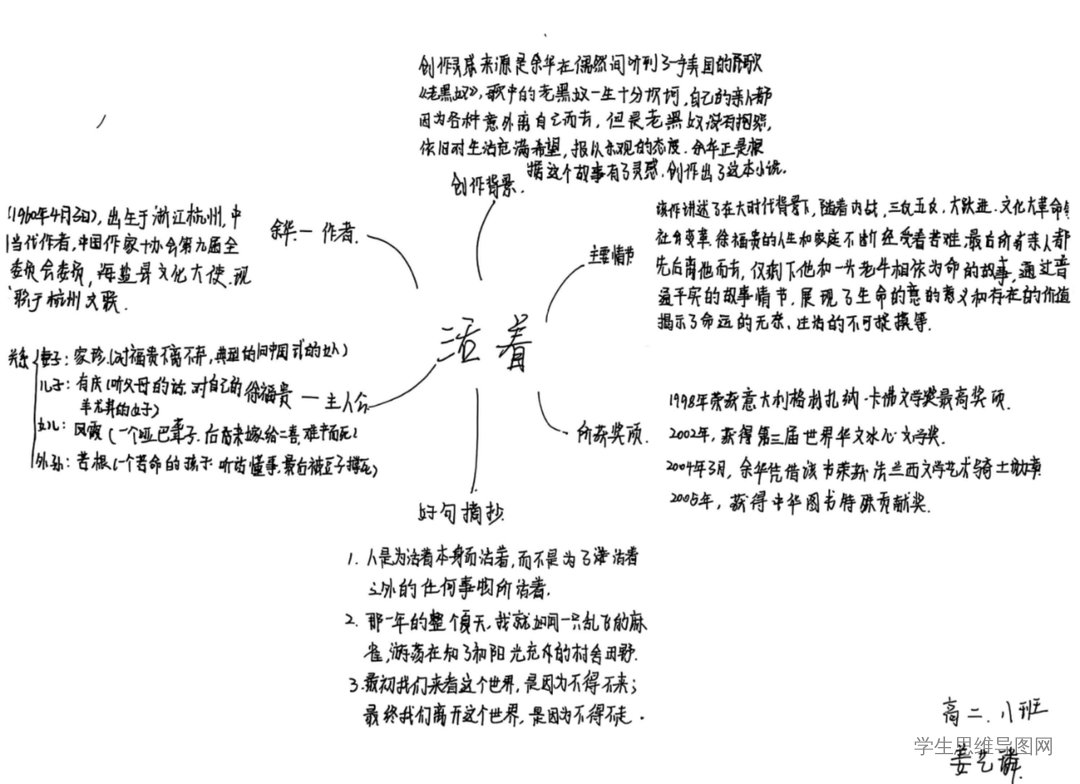 创作灵感来源是余华在偶然间听到了一首美国的民歌
《老黑奴》,歌中的老黑奴一生十分坎坷,自己的亲人都
因为各种意外离自己而去,但是老黑奴没有抱怨,
依旧对生活充满希望,报以乐观的态度.余华正是根
据这个故事有了灵感,创作出了这本小说.
创作背景.
(1960年4月3日),出生于浙江杭州,中
当代作者,中国作家协会第九届全
委员会委员,海盐县文化大使.现
职于杭州文联.
余华—作者.
主要情节
该作讲述了在大时代背景下,随着内战,三反五反,大跃进.文化大革命
社会变革,徐福贵的人生和家庭不断经受着苦难,最后所有亲人都
先后离他而去,仅剩下他和一头老牛相依为命的故事,通过普
通平实的故事情节,展现了生命的意的意义和存在的价值
揭示了命运的无奈、生活的不可捉摸等.
活着
关系
妻子:家珍.(对福贵不离不弃,典型的旧中国式的女人)
儿子:有庆(听父母的话.对自己的
羊尤其的好)
女儿:凤霞(一个哑巴聋子.后来嫁给二喜,难产而死)
外孙:苦根(一个苦命的孩子.听话懂事,最后被豆子撑死)
徐福贵—主人公
所获奖项.
1998年荣获意大利格林扎纳·卡佛文学奖最高奖项.
2002年,获得第三届世界华文冰心文学奖.
2004年3月,余华凭借该书荣获法兰西文学艺术骑士勋章
2005年,获得中华图书特殊贡献奖.
好句摘抄
1.人是为活着本身而活着,而不是为了活着
之外的任何事物所活着.
2.那一年的整个夏天,我就如同一只乱飞的麻
雀,游荡在知了和阳光充斥的村舍田野.
3.最初我们来看这个世界,是因为不得不来;
最终我们离开这个世界,是因为不得不走.
高二.八班
学生思维导图网
姜艺